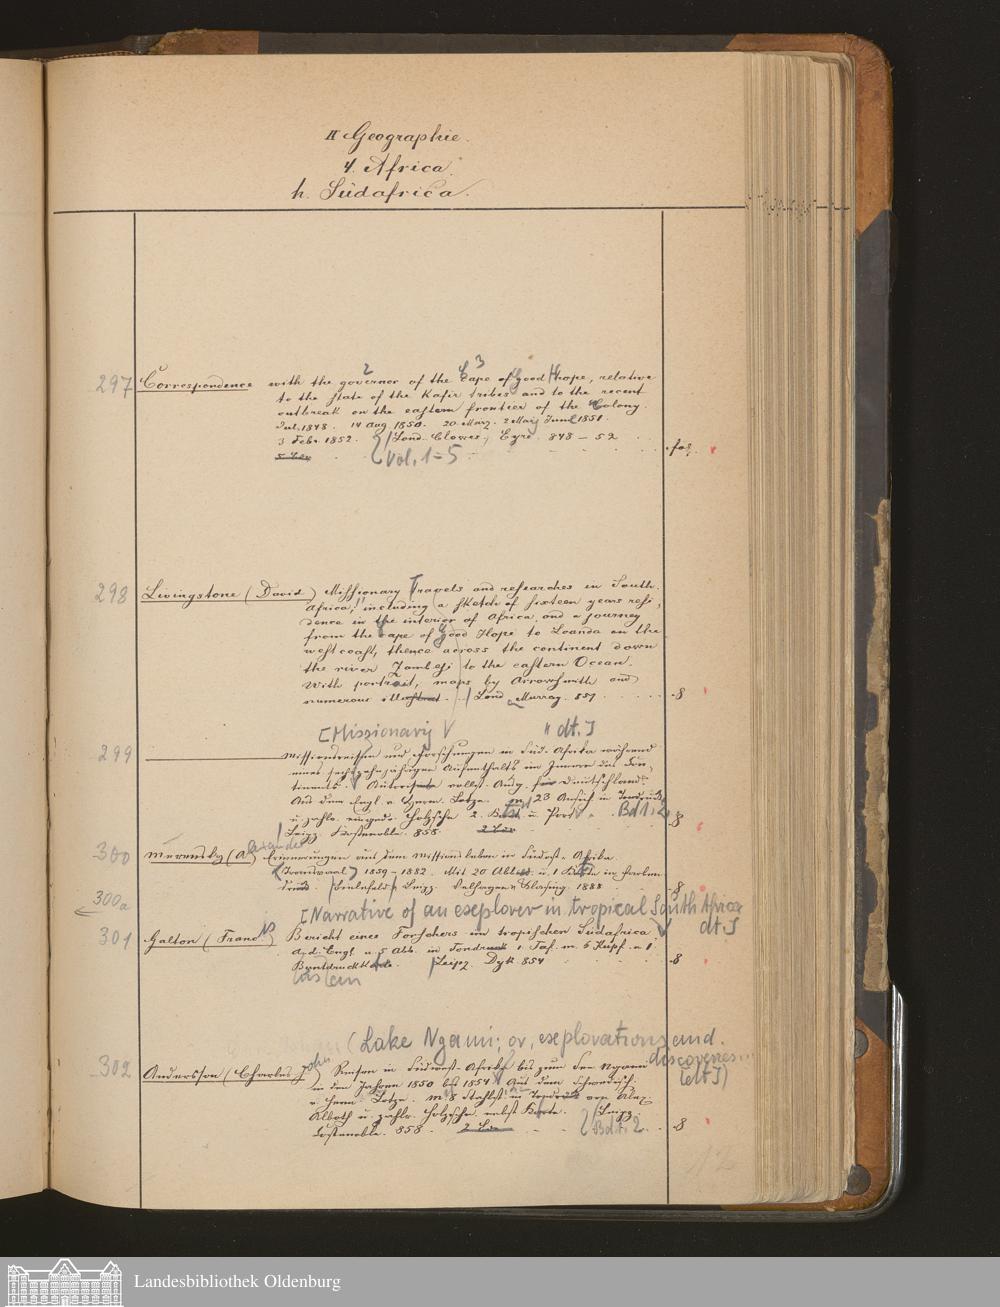 II Geographie.
4. Africa.
h. Südafrica.
297 Correspondence with the governor of the Cape of Good Hope, relative
2 3
to the state of the Kafir tribes and to the recent
outbreak on the eastern frontier of the Colony.
Jul. 1848. 14 Aug 1850. 20 Merz. 2 Maj Junl 1851
3 Febr. 1852. Lond. Clowes, Eyre. 848 – 52
Vol. 1-5 fol.
298 Livingstone (David) Missionary Travels and researches in South.
Africa; including a sketch of sixteen years resi,
dence in the interior of Africa, and a journey
from the Cape of Good Hope to Loanda on the
west coast, thence across the continent down
the river Zambesi to the eastern Ocean.
With portrait, maps by Arrowsmith and
numerous illustrat. Lond. Murray. 857 8
[Missionary dt.]
299 Missionsreisen und Forschungen in Süd-Afrika während
eines sechzehnjährigen Aufenthalts im Innern des Con-
tinents. Autorisirte vollst. Ausg. für Deutschland.
Aus dem Engl. v. Herm. Lotze. m. 23 Ansich. in Tondruck
u. zahlr. eingedr. Holzschn. 2 Kart. u. Portr. Bd 1. 2 8
Leipz. Costenoble. 858.
300 Merensky (Alexander) Erinnerungen aus dem Missionsleben in Südost-Afrika
(Transvaal) 1859-1882. Mit 20 Abb. u. 1 Karte in Farben
druck. Bielefeld, Leipz. Velhagen u. Klasing. 1888 8
300a
[Narrative of an explorer in tropical South Africa
dt.]
301 Galton (Francis) Bericht eines Forschers im tropischen Südafrica.
A. d. Engl. m. 5 Abb. in Tondruck 1 Taf. m. 6 Kupf. u. 1
Buntdruckkarte. Leipz. Dyk. 854 8
(Lake Ngami; or, explorations and.
discoveries...
(dt])
302 Andersson (Charles John) Reisen in Südwest-Afrika bis zum See Ngami
in den Jahren 1850 bis 1854. Aus dem Schwedisch.
v. Herm. Lotze. m. 8 Stahlst. in Tondruck von Alex.
Alboth u. zahlr. Holzschn. nebst Karte. Leipz.
Costenoble. 858. Bd 1. 2. 8
Landesbibliothek Oldenburg